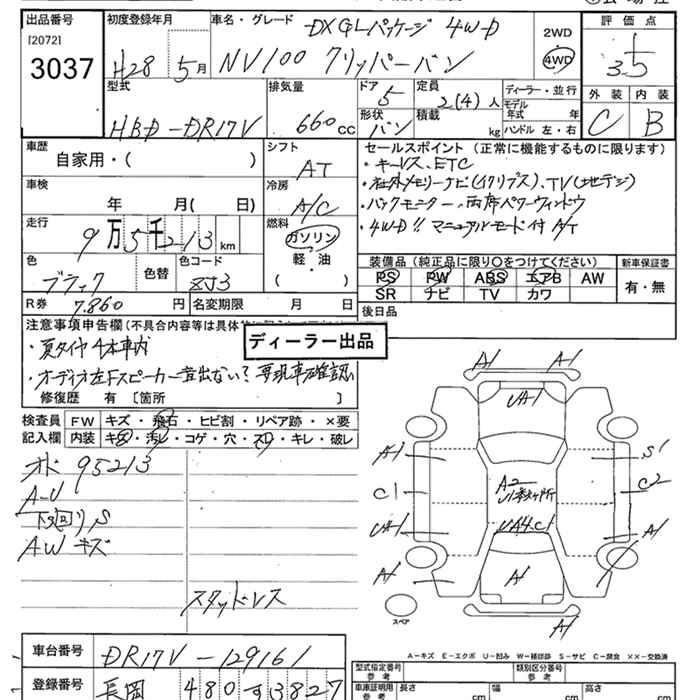 出品番号 初度登録年月 車名・グレード DX GLパッケージ 4WD 2WD 評価点
[2072]
3037 H28 5月 NV100 クリッパーバン 4WD 3.5
型式 排気量 ドア 5 定員 2(4)人 ディーラー・並行 外装 内装
HBD-DR17V 660cc 形状 バン 積載 kg モデル年式 年 ハンドル 左・右 C B
車歴 シフト セールスポイント(正常に機能するものに限ります)
自家用・( ) AT ・キーレス、ETC
車検 冷房 ・社外メモリーナビ(イクリプス)、TV(地デジ)
年 月( 日) A/C ・バックモニター・両席パワーウィンドウ
走行 燃料 ・4WD!! マニュアルモード付A/T
9万5千213km ガソリン
色 色替 色コード 軽・油 装備品(純正品に限り○をつけてください) 新車保証書
ブラック ZJ3 ( ) PS PW ABS エアB AW 有・無
R券 7.860円 名変期限 月 日 SR ナビ TV カワ
後日品
注意事項申告欄(不具合内容等は具体的に
ディーラー出品
・夏タイヤ4本車内
・オーディオ左Fスピーカー音出ない?要現車確認
修復歴 有 〔箇所 〕
検査員 FW キズ・飛石・ヒビ割・リペア跡・×要
記入欄 内装 キズ・汚レ・コゲ・穴・スレ・キレ・破レ
メーター 95213
A-U
下回りS
AWキズ
スタッドレス
A1 A1
UA1
A1 S1
C1 A2 C2
UA1 UA4C1 A1
A1 A1
スペア A1
A-キズ E-エクボ U-凹み W-補修跡 S-サビ C-腐食 ××-交換済
車台番号 DR17V-129161 型式指定番号 参考 類別区分番号 参考
登録番号 長岡 480 す3827 車庫証明用 参考 長さ cm 幅 cm 高さ cm